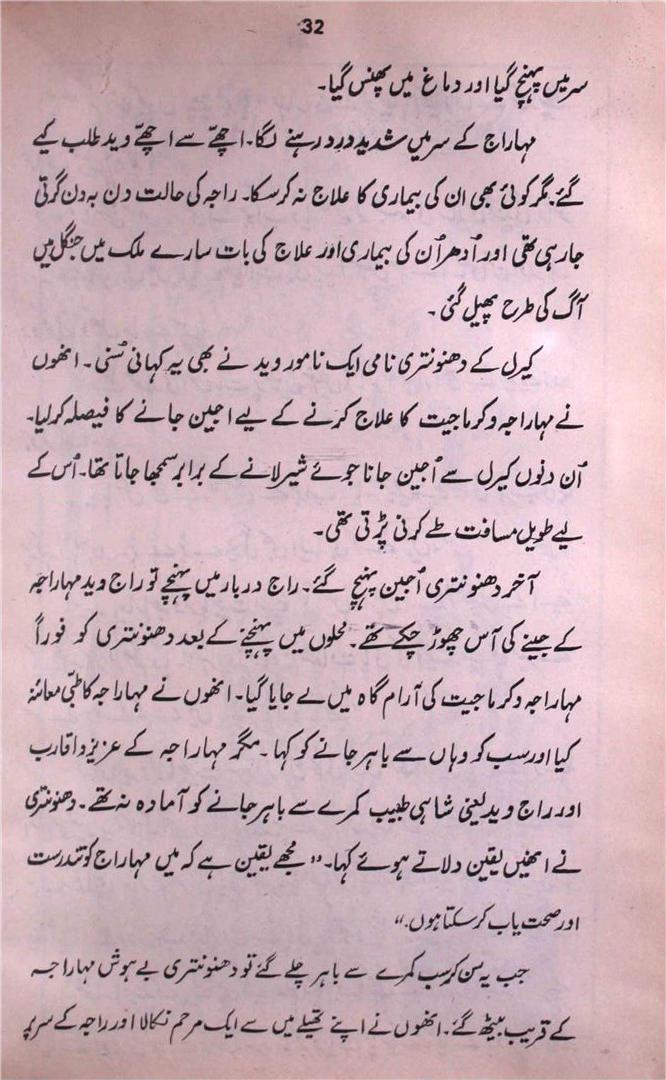 32
سر میں پہنچ گیا اور دماغ میں پھنس گیا۔
مہاراج کے سر میں شدید درد رہنے لگا۔ اچھے سے اچھے وید طلب کیے
گئے۔ مگر کوئی بھی ان کی بیماری کا علاج نہ کرسکا۔ راجہ کی حالت دن بہ دن گرتی
جارہی تھی اور اُدھر اُن کی بیماری اور علاج کی بات سارے ملک میں جنگل میں
آگ کی طرح پھیل گئی۔
کیرل کے دھنونتری نامی ایک نامور وید نے بھی یہ کہانی سُنی۔ انھوں
نے مہاراجہ وکرماجیت کا علاج کرنے کے لیے اجین جانے کا فیصلہ کرلیا۔
اُن دنوں کیرل سے اُجین جانا جوئے شیر لانے کے برابر سمجھا جاتا تھا۔ اُس کے
لیے طویل مسافت طے کرنی پڑتی تھی۔
آخر دھنونتری اُجین پہنچ گئے۔ راج دربار میں پہنچے تو راج وید مہاراجہ
کے جینے کی آس چھوڑ چکے تھے۔ محلوں میں پہنچنے کے بعد دھنونتری کو فوراً
مہاراجہ وکرماجیت کی آرام گاہ میں لے جایا گیا۔ انھوں نے مہاراجہ کا طبّی معائنہ
کیا اور سب کو وہاں سے باہر جانے کو کہا۔ مگر مہاراجہ کے عزیز و اقارب
اور راج وید یعنی شاہی طبیب کمرے سے باہر جانے کو آمادہ نہ تھے۔ دھنونتری
نے انھیں یقین دلاتے ہوئے کہا۔ "مجھے یقین ہے کہ میں مہاراج کو تندرست
اور صحت یاب کرسکتا ہوں۔"
جب یہ سن کر سب کمرے سے باہر چلے گئے تو دھنونتری بے ہوش مہاراجہ
کے قریب بیٹھ گئے۔ انھوں نے اپنے تھیلے میں سے ایک مرحم نکالا اور راجہ کے سر پر